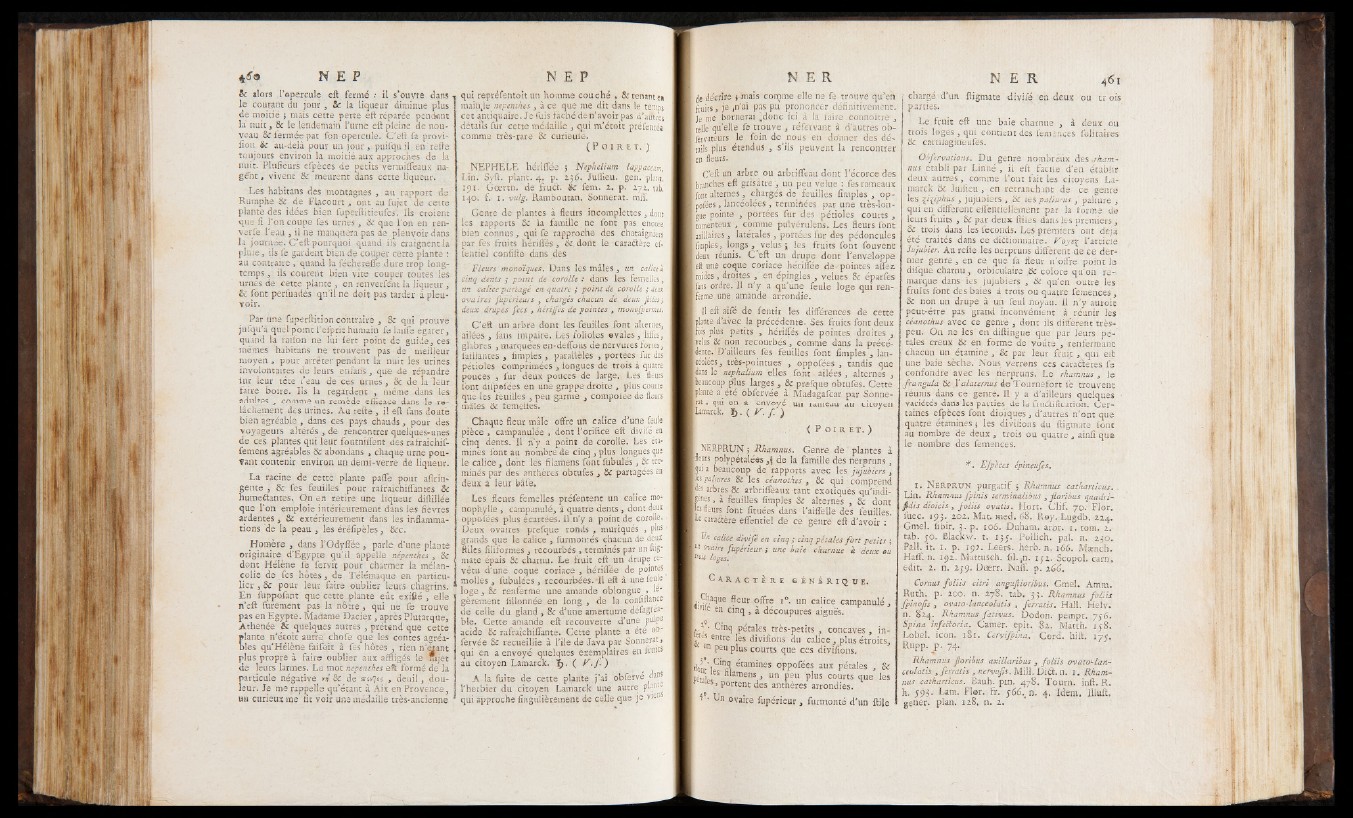 460 N E P
& alors l'opercule est fermé : il s'ouvre dans
le courant du jour, & la liqueur diminue plus
de moitié ; mais cette perte est réparée pendant
la nuit, & le lendemain l'urne est pleine de nou-
veau & fermée par son opercule. C'est sa provi-
sion & au-delà pour un jour, puisqu'il en reste
toujours environ la moitié aux approches de la
nuit. Plusieurs espèces de petits vermisseaux na-
gent, vivent & meurent dans cette liqueur.
Les habitans des montagnes, au rapport de
Rumphe & de Flacourt, ont au sujet de cette
plante des idées bien superstitieuses. Ils croient
que si l'on coupe ses urnes, & que l'on en ren-
verse l'eau, il ne manquera pas de pleuvoir dans
la journée. C'est pourquoi quand ils craignent la
pluie, ils se gardent bien de couper cette plante :
au contraire, quand la sécheresse dure trop long-
temps, ils courent bien vîte couper toutes les
urnes de cette plante, en renversent la liqueur,
& sont persuadés qu'il ne doit pas tarder à pleu-
voir.
Par une superstition contraire, & qui prouve
jusqu'à quel point l'esprit humain se laisse égarer,
quand la raison ne lui sert point de guide, ces
mêmes habitans ne trouvent pas de meilleur
moyen, pour arrêter pendant la nuit les urines
involontaires de leurs enfans, que de répandre
sur leur tête l'eau de ces urnes, & de la leur
faire boire. Ils la regardent, même dans les
adultes, comme un remède efficace dans le re-
lâchement des urines. Au reste, il est sans doute
bien agréable, dans ces pays chauds, pour des
voyageurs altérés, de rencontrer quelques-unes
de ces plantes qui leur fournissent des rafraichis-
semens agréables & abondans, chaque urne pou-
vant contenir environ un demi-verre de liqueur.
La racine de cette plante passe pour astrin-
gente, & ses feuilles pour rafraichissantes &
humectantes. On en retire une liqueur distillée
que l'on emploie intérieurement dans les fièvres
ardentes, & extérieurement dans les inflamma-
tions de la peau, les érésipèles, &c.
Homère, dans l'Odyssée, parle d'une plante
originaire d'Egypte qu'il appelle népenthes, &
dont Hélène se servit pour charmer la mélan-
colie de ses hôtes, de Télémaque en particu-
lier, & pour leur faire oublier leurs chagrins.
En supposant que cette plante eût existé, elle
n'est surement pas la nôtre, qui ne se trouve
pas en Egypte. Madame Dacier, après Plutarque,
Athénée & quelques autres, prétend que cette
plante n'étoit autre chose que les contes agréa-
bles qu'Hélène faisoit à ses hôtes, rien n'étant
plus propre à faire oublier aux affligés le sujet
de leurs larmes. Le mot nepenthes est formé de la
particule négative & de , deuil, dou-
leur. Je me rappelle qu'étant à Aix en Provence,
un curieux me fit voir une médaille très-ancienne
N E P
qui représentoit un homme couché, & tenant en
main le nepenthes, à ce que me dit dans le temps
cet antiquaire. Je suis fâché de n'avoir pas d'autres
détails sur cette médaille, qui m'étoit présentée
comme très-rare & curieuse.
( POIRET. )
NEPHELE hérissée ; Nephelium lappaceum.
Lin. Syst. plant. 4. p. 236. Jussieu. gen. plant.
191. Gœrtn. de fruct. & sem. 2. p. 272. tab.
140. f. 1. vulg. Ramboutan. Sonnerat. mss.
Genre de plantes à fleurs incomplettes, dont
les rapports & la famille ne sont pas encore
bien connus, qui se rapproche des chataigniers
par ses fruits hérissés, & dont le caractère es-
sentiel consiste dans des
Fleurs monoïques. Dans les mâles, un calice à
cinq dents ; point de corolle : dans les femelles,
un calice partagé en quatre ; point de corolle ; deux
ovaires supérieurs, chargés chacun de deux stiles ;
deux drupes secs, hérissés de pointes, monospermes.
C'est un arbre dont les feuilles sont alternes,
ailées, sans impaire. Les folioles ovales, lisses,
glabres, marquées en-dessous de nervures fortes,
saillantes, simples, parallèles, portées sur des
pétioles comprimées, longues de trois à quatre
pouces, sur deux pouces de large. Les fleurs
sont disposées en une grappe droite, plus courte
que les feuilles, peu garnie, composée de fleurs
mâles & femelles.
Chaque fleur mâle offre un calice d'une seule
pièce, campanulée, dont l'orifice est divisé en
cinq dents. Il n'y a point de corolle. Les éta-
mines sont au nombre de cinq, plus longues que
le calice, dont les filamens sont subulés, & ter-
minés par des anthères obtuses, & partagées en
deux à leur bâse.
Les fleurs femelles présentent un calice mo-
nophylle, campanulé, à quatre dents, dont deux
opposées plus écartées. Il n'y a point de corolle.
Deux ovaires presque ronds, muriqués, plus
grands que le calice, surmontés chacun de deux
stiles filiformes, recourbés, terminés par un stig-
mate épais & charnu. Le fruit est un drupe re-
vêtu d'une coque coriace, hérissée de pointes
molles, subulées, recourbées. Il est à une seule
loge, & renferme une amande oblongue, lé-
gèrement sillonnée en long, de la consistance
de celle du gland, & d'une amertume désagréa-
ble. Cette amande est recouverte d'une pulpe
acide & rafraichissante. Cette plante a été ob-
servée & recueillie à l'île de Java par Sonnerat,
qui en a envoyé quelques exemplaires en fruits
au citoyen Lamarck. ♄. ( V. s. )
A la suite de cette plante j'ai observé dans
l'herbier du citoyen Lamarck une autre plante
qui approche singulièrement de celle que je viens
N E R
de décrire ; mais comme elle ne se trouve qu'en
fruits, je n'ai pas pu prononcer définitivement.
Je me bornerai donc ici à la faire connoître,
telle qu'elle se trouve, réservant à d'autres ob-
servateurs le soin de nous en donner des dé-
tails plus étendus, s'ils peuvent la rencontrer
en fleurs.
C'est un arbre ou arbrisseau dont l'écorce des
branches est grisâtre, un peu velue : ses rameaux
sont alternes, chargés de feuilles simples, op-
posées, lancéolées, terminées par une très-lon-
gue pointe, portées sur des pétioles courts,
tomenteux, comme pulvérulens. Les fleurs sont
axillaires, latérales, portées sur des pédoncules
simples, longs, velus ; les fruits sont souvent
deux réunis. C'est un drupe dont l'enveloppe
est une coque coriace hérissée de pointes assez
roides, droites, en épingles, velues & éparses
sans ordre. Il n'y a qu'une seule loge qui ren-
ferme une amande arrondie.
Il est aisé de sentir les différences de cette
plante d'avec la précédente. Ses fruits sont deux
fois plus petits, hérissés de pointes droites,
velus & non recourbés, comme dans la précé-
dente. D'ailleurs ses feuilles sont simples, lan-
céolées, très-pointues, opposées, tandis que
dans le nephelium elles sont ailées, alternes,
beaucoup plus larges, & presque obtuses. Cette
plante a été observée à Madagascar par Sonne-
rat, qui en a envoyé un rameau au citoyen
Lamarck. ♄. ( V. s. )
( POIRET. )
NERPRUN ; Rhamnus. Genre de plantes à
fleurs polypétalées, de la famille des nerpruns,
qui a beaucoup de rapports avec les jujubiers,
les paliures & les céanothes, & qui comprend
des arbres & arbrisseaux tant exotiques qu'indi-
gènes, à feuilles simples & alternes, & dont
les fleurs sont situées dans l'aisselle des feuilles.
Le caractère essentiel de ce genre est d'avoir :
Un calice divisé en cinq ; cinq pétales fort petits ;
un ovaire supérieur ; une baie charnue à deux ou
trois loges.
CARACTÈRE GÉNÉRIQUE.
Chaque fleur offre 1°. un calice campanulé,
divisé en cinq, à découpures aiguës.
2°. Cinq pétales très-petits, concaves, in-
sérés entre les divisions du calice, plus étroits,
& un peu plus courts que ces divisions.
3°. Cinq étamines opposées aux pétales, &
dont les filamens, un peu plus courts que les
pétales, portent des anthères arrondies.
4°. Un ovaire supérieur, surmonté d'un stile
N E R 461
chargé d'un stigmate divisé en deux ou trois
parties.
Le fruit est une baie charnue, à deux ou
trois loges, qui contient des semences solitaires
& cartilagineuses.
Observations. Du genre nombreux des rham-
nus établi par Linné, il est facile d'en établir
deux autres, comme l'ont fait les citoyens La-
marck & Jussieu, en retranchant de ce genre
les ziziphus, jujubiers, & les paliurus, paliure,
qui en diffèrent essentiellement par la forme de
leurs fruits, & par deux stiles dans les premiers,
& trois dans les seconds. Les premiers ont déjà
été traités dans ce dictionnaire. Voyez l'article
Jujubier. Au reste les nerpruns diffèrent de ce der-
nier genre, en ce que sa fleur n'offre point le
disque charnu, orbiculaire & coloré qu'on re-
marque dans les jujubiers, & qu'en outre les
fruits sont des baies à trois ou quatre semences,
& non un drupe à un seul noyau. Il n'y auroit
peut-être pas grand inconvénient à réunir les
céanothus avec ce genre, dont ils diffèrent très-
peu. On ne les en distingue que par leurs pé-
tales creux & en forme de voûte, renfermant
chacun un étamine, & par leur fruit, qui est
une baie sèche. Nous verrons ces caractères se
confondre avec les nerpruns. Le rhamnus, le
frangula & l'alaternus de Tournefort se trouvent
réunis dans ce genre. Il y a d'ailleurs quelques
variétés dans les parties de la fructification. Cer-
taines espèces sont dioiques, d'autres n'ont que
quatre étamines ; les divisions du stigmate sont
au nombre de deux, trois ou quatre, ainsi que
le nombre des semences.
*. Espèces épineuses.
1. NERPRUN purgatif ; Rhamnus catharticus.
Lin. Rhamnus spinis terminalibus, floribus quadri-
fidis dioicis, foliis ovatis. Hort. Clif. 70. Flor.
suec. 193. 202. Mat. med. 68. Roy. Lugdb. 224.
Gmel. sibir. 3. p. 106. Duham. arbr. 1. tom. 2.
tab. 50. Blackw. t. 135. Pollich. pal. n. 230.
Pall. it. 1. p. 192. Leers. herb. n. 166. Mœnch.
Hass. n. 192. Mattusch. sil. n. 152. Scopol. carn.
edit. 2. n. 259. Dœrr. Nass. p. 266.
Cornus foliis citri angustioribus. Gmel. Amm.
Ruth. p. 200. n. 278. tab. 33. Rhamnus foliis
spinosis, ovato-lanceolatis, serratis. Hall. Helv.
n. 824. Rhamnus solutivus. Dodon. pempt. 756.
Spina infectoria. Camer. epit. 82. Matth. 158.
Lobel. icon. 181. Cervispina. Cord. hist. 175.
Rupp. p. 74.
Rhamnus floribus axillaribus, foliis ovato-lan-
ceolatis, serratis, nervosis. Mill. Dict. n. 1. Rham-
nus catharticus. Bauh. pin. 478. Tourn. inst. R.
h. 593. Lam. Flor. fr. 566. n. 4. Idem. Illust.
gener. plan. 128. n. 2.